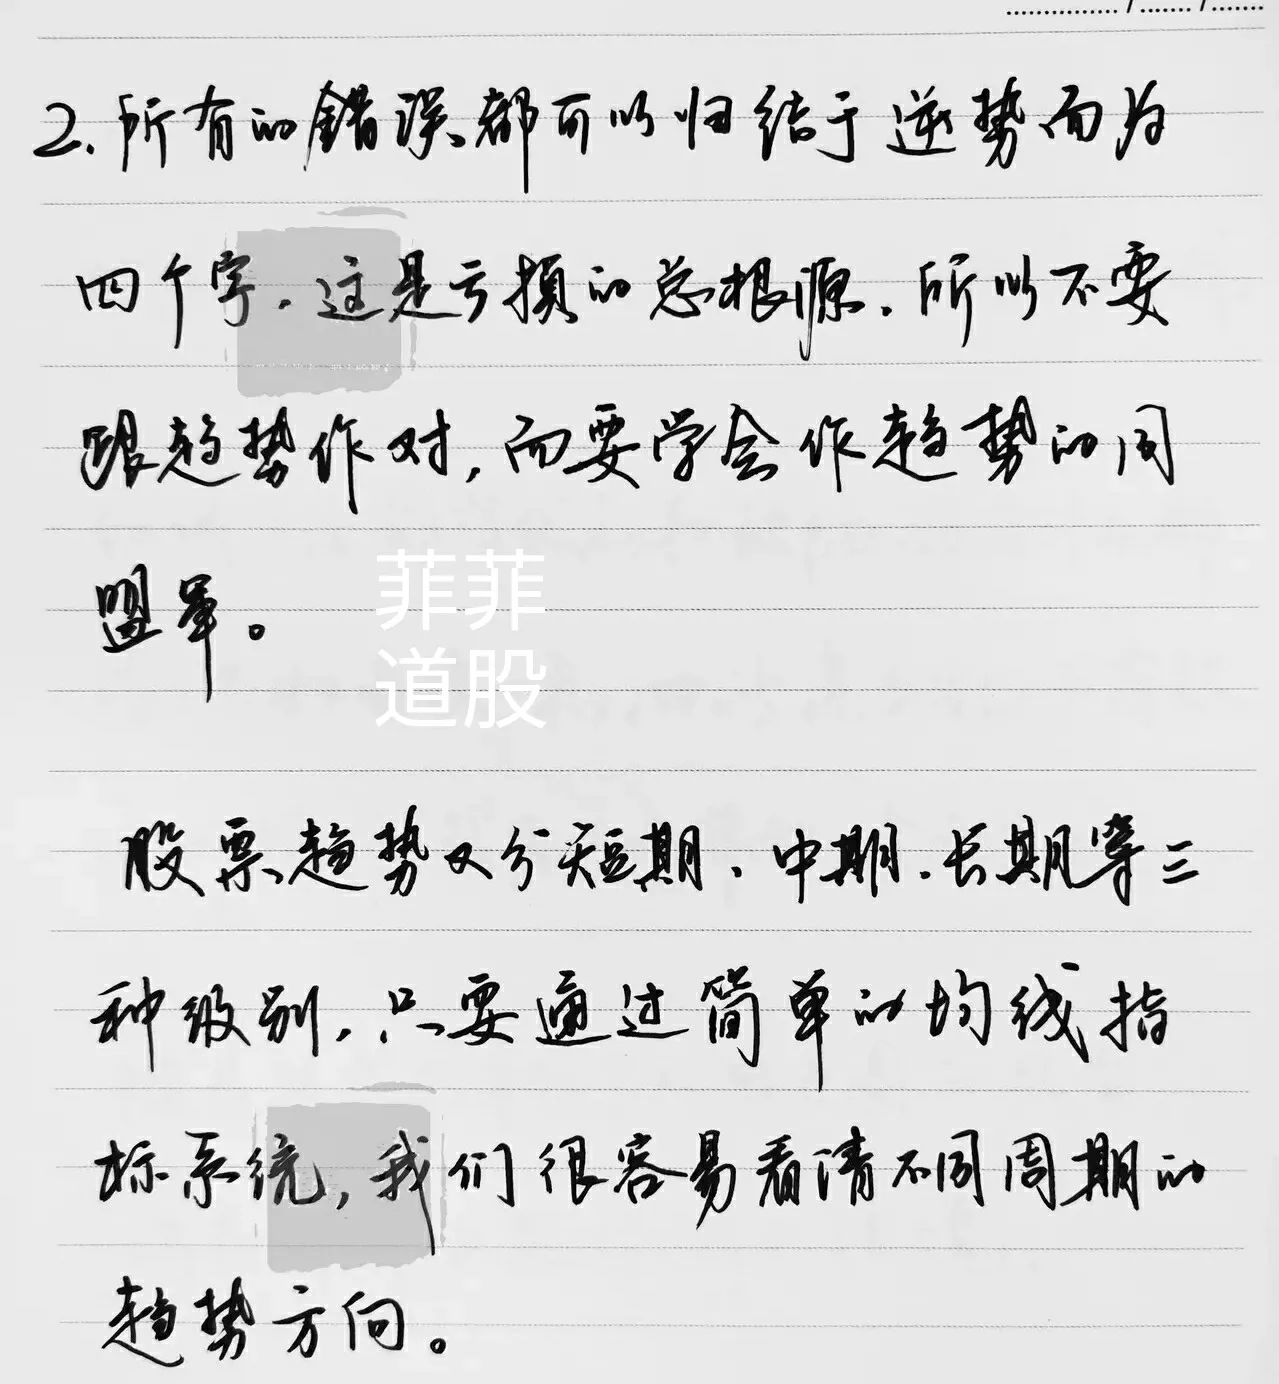 2.所有的错误都可以归结于逆势而为
四个字.这是亏损的总根源.所以不要
跟趋势作对,而要学会作趋势的同
盟军。
菲菲
道股
股票趋势又分短期、中期、长期等三
种级别,只要通过简单的均线指
标系统,我们很容易看清不同周期的
趋势方向。